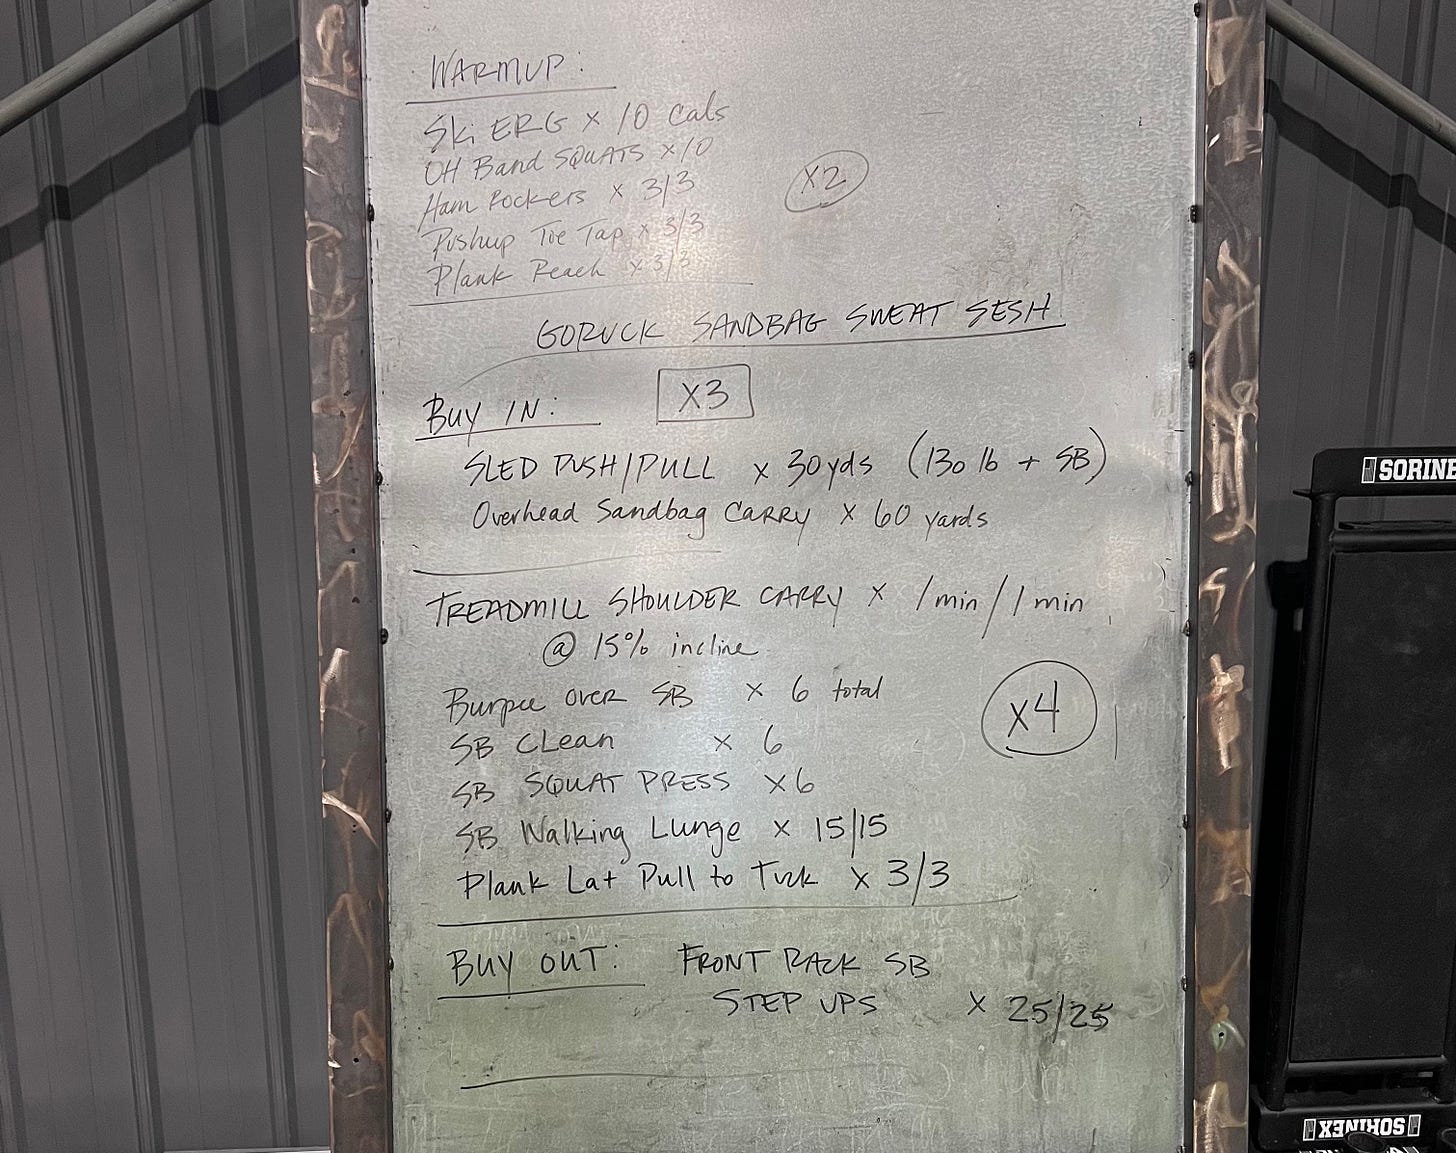 WARMUP:
Ski ERG x 10 Cals
OH Band SQUATS x10
Ham Rockers x 3/3
x2
Pushup Toe Tap x 3/3
Plank Reach x 3/3
GORUCK SANDBAG SWEAT SESH
BUY IN:
X3
SLED PUSH/PULL x 30yds (130 lb + SB)
Overhead Sandbag CARRY x 60 yards
TREADMILL SHOULDER CARRY x 1min/1min
@ 15% incline
Burpee over SB x 6 total
SB CLean x 6
x4
SB SQUAT PRESS x6
SB Walking Lunge x 15/15
Plank Lat Pull to Tuck x 3/3
BUY OUT: FRONT RACK SB
STEP UPS x 25/25
SORINE
SORINEX